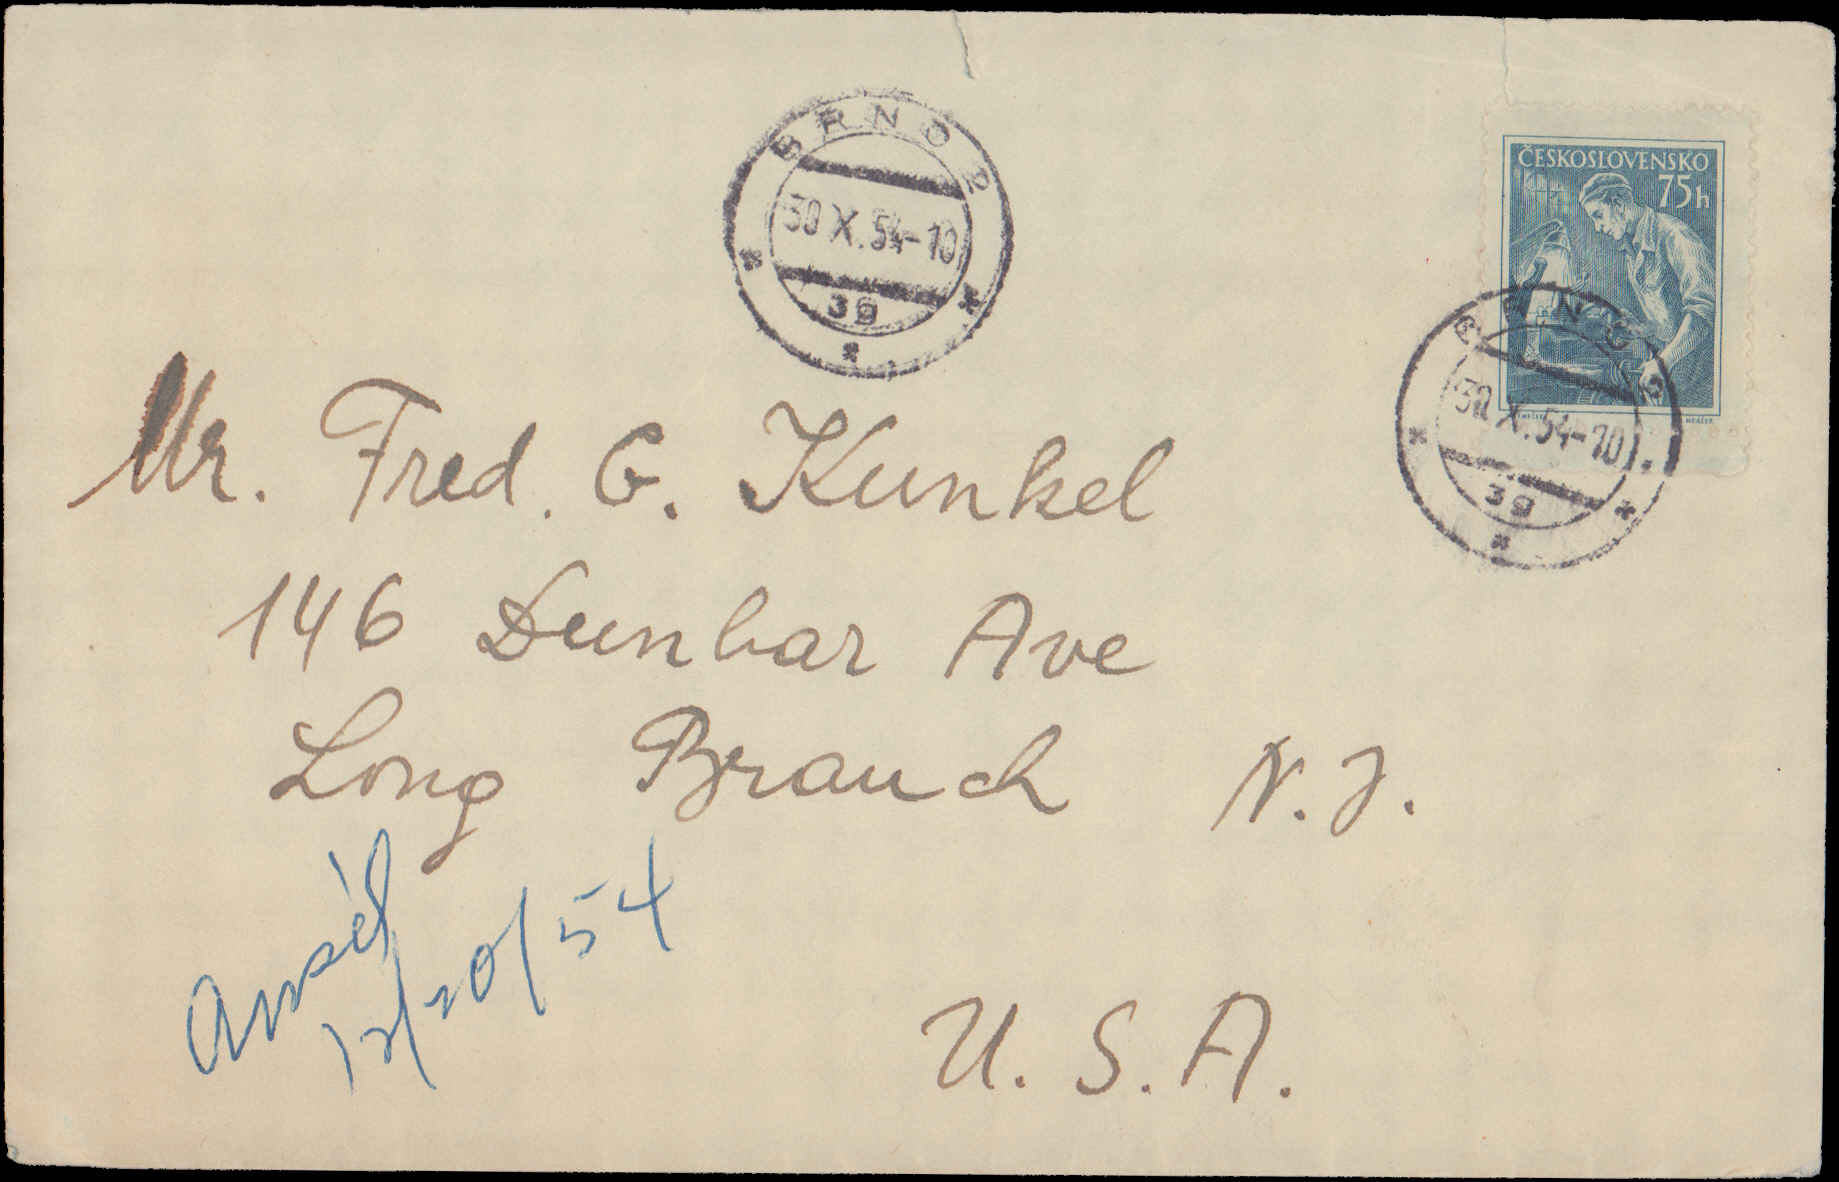 BRNO 2
30.X.54-10
39
ČESKOSLOVENSKO
75h
BRNO 2
30.X.54-10
39
Mr. Fred. G. Kunkel
146 Dunbar Ave
Long Branch N.J.
Ansd
12/20/54
U.S.A.